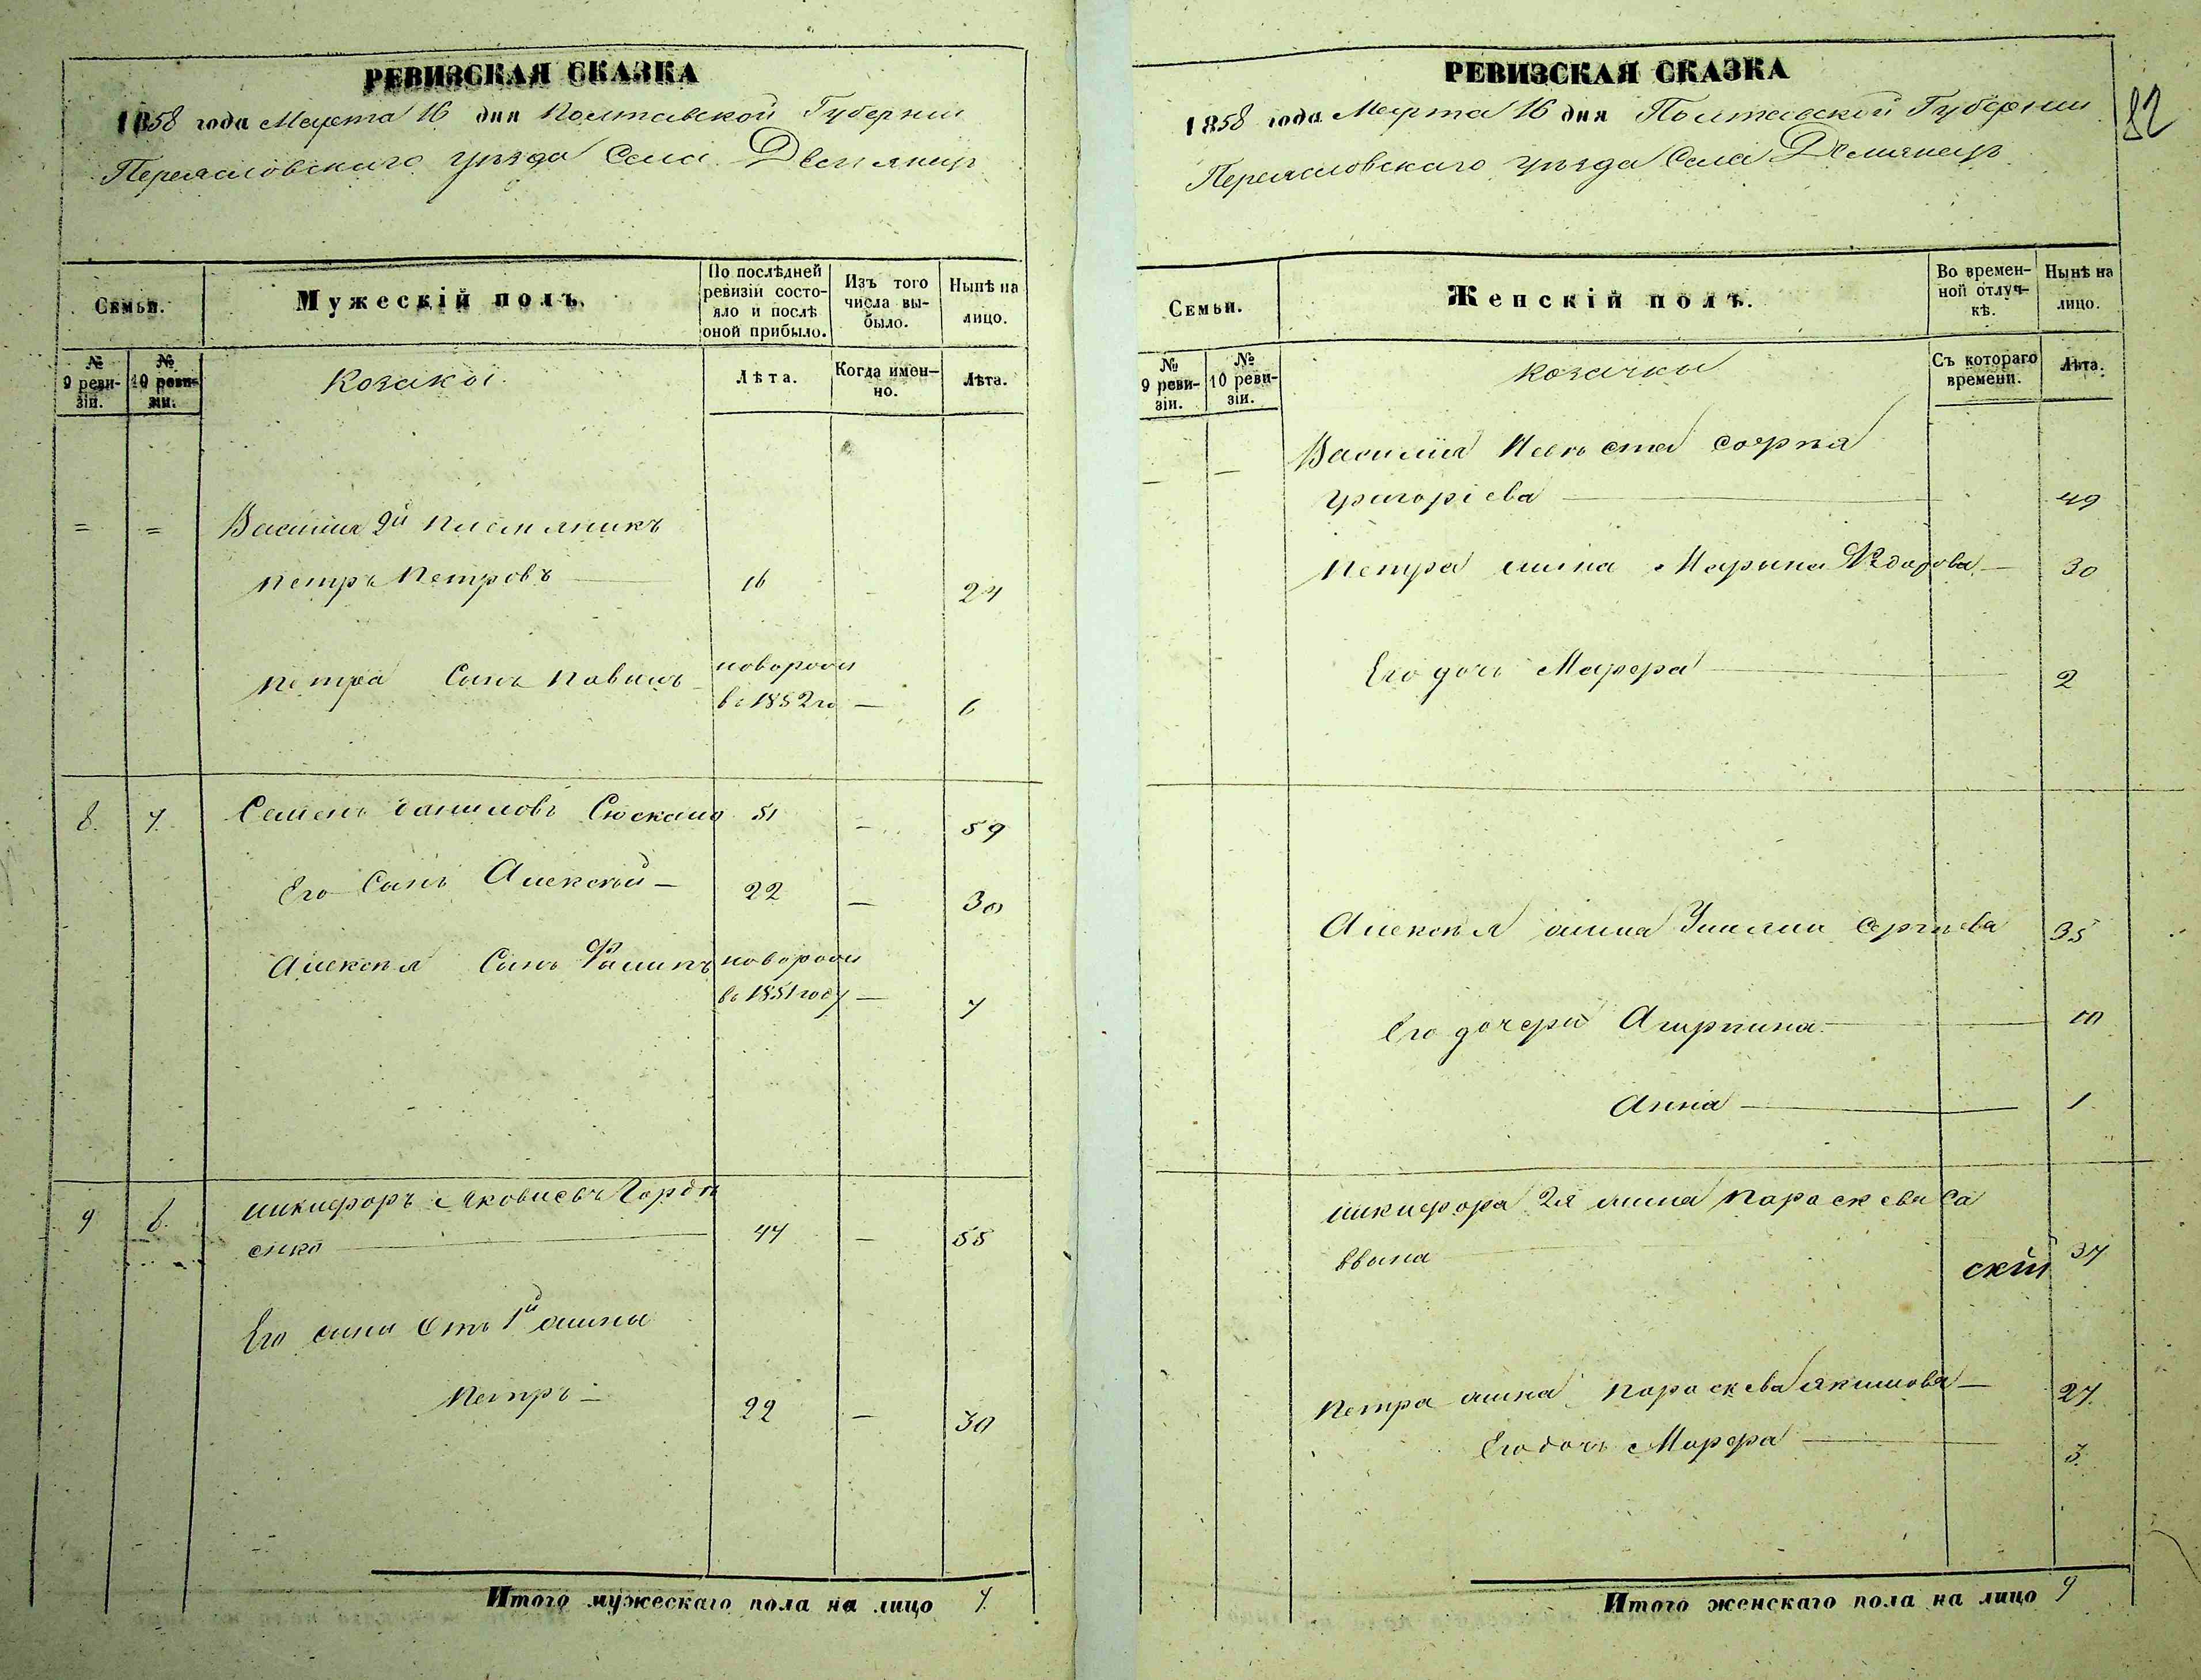 РЕВИЗСКАЯ СКАЗКА
1858 года Марта 16 дня Полтавской Губернии
Переясловскаго уѣзда Села
Семьи.
Мужескій полъ.
По послѣдней ревизіи состояло и послѣ оной прибыло.
Изъ того числа выбыло.
Нынѣ на лицо.
№ 9 ревизіи.
№ 10 ревизіи.
Козаки
Лѣта.
Когда именно.
Лѣта.
= = Василия 2й племяникъ
Петръ Петровъ 16 24
Петра Сынъ Павилъ новорожд
въ 1852 го — 6
8. 7. Семенъ Даниловъ 51 — 59
Его Сынъ Алексѣй — 22 — 30
Алексѣя Сынъ Филипъ новорожд
въ 1851 году — 7
9 8. Никифоръ Яковлевъ Гордѣ
енко 47 — 55
Его сыны отъ 1й жины
Петръ — 22 — 30
Итого мужескаго пола на лицо 7.
РЕВИЗСКАЯ СКАЗКА
82
1858 года Марта 16 дня Полтавской Губернии
Переясловскаго уѣзда Села Демянецъ
Семьи.
Женскій полъ.
Во временной отлучкѣ.
Нынѣ на лицо.
№ 9 ревизіи.
№ 10 ревизіи.
Козачки
Съ котораго времени.
Лѣта.
— — Василия Невѣстка
Григоріева 49
Петра жина Марина — 30
Его дочь Марфа 2
Алексѣя жина Улияна Сергѣева 35
Его дочери Агирпина 10
Анна 1.
Никифора 2я жина Параскева Са
ввина 37
ский
Петра жина Параскева Якимова — 27.
Его дочь Марфа 3.
Итого женскаго пола на лицо 9